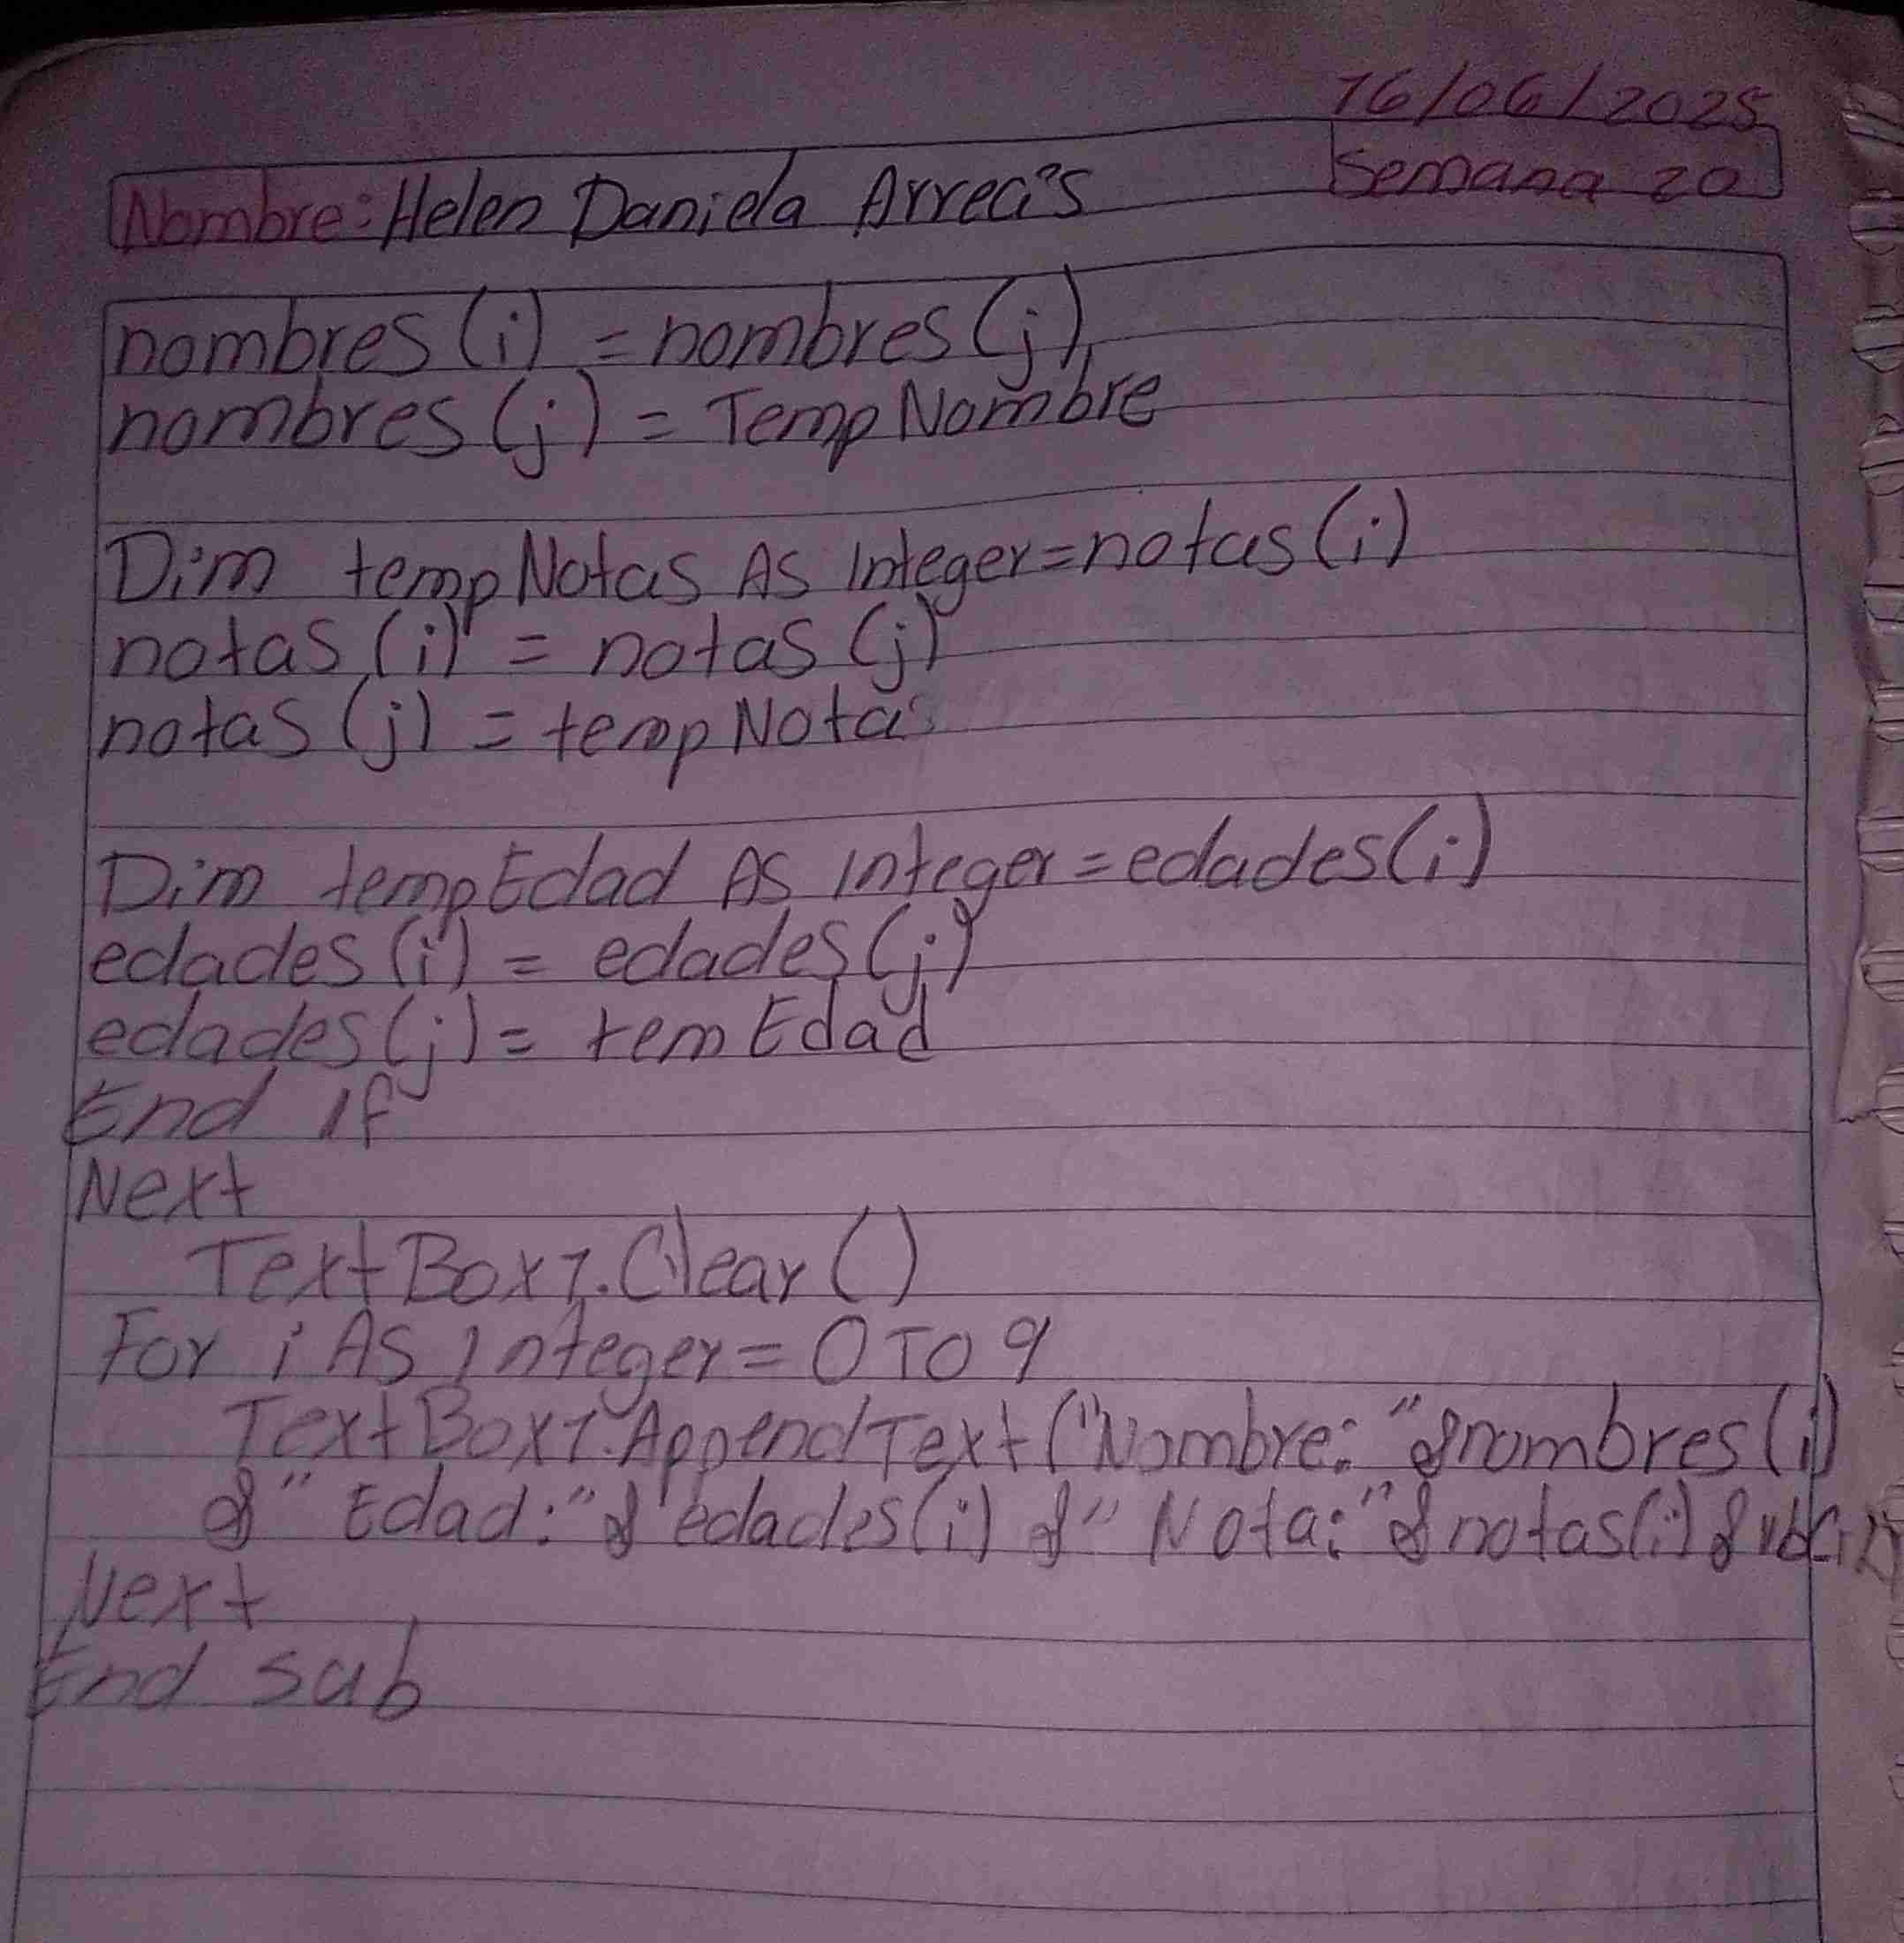 16/06/2025
Semana 20
Nombre: Helen Daniela Arrecis
nombres (i) = nombres (j)
nombres (j) = Temp Nombre
Dim temp Notas As Integer = notas (i)
notas (i) = notas (j)
notas (j) = temp Notas
Dim temp Edad As Integer = edades (i)
edades (i) = edades (j)
edades (j) = tem Edad
End If
Next
Text Box1.Clear ()
For i As Integer = 0 To 9
Text Box1.Append Text ("Nombre: " & nombres (i)
& " Edad: " & edades (i) & " Nota: " & notas (i) &
Next
End sub